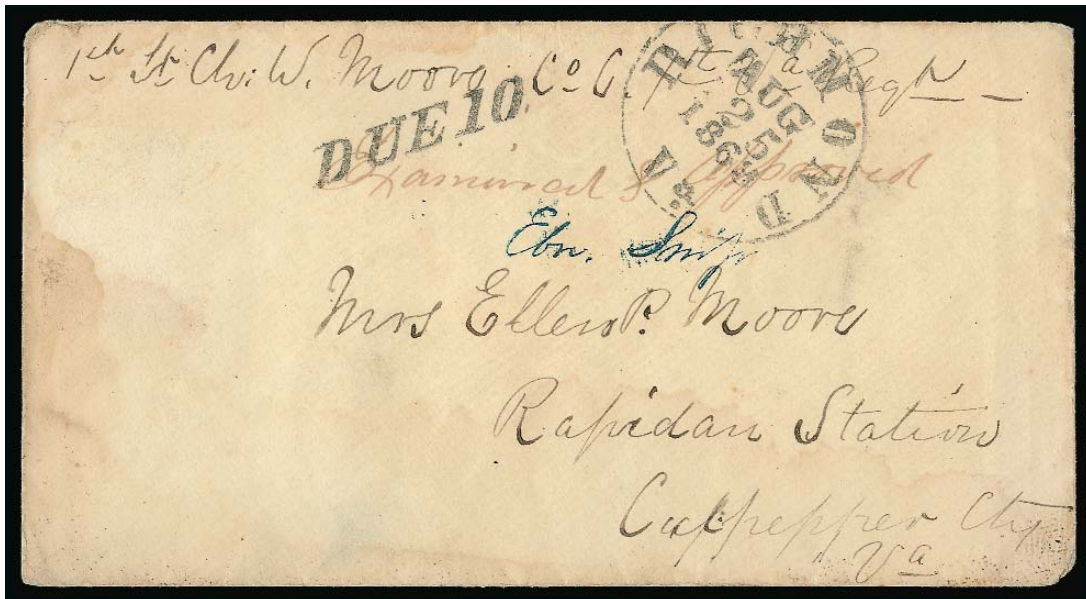 1st Lt Ch: W. Moore Co C. Va Regt
DUE 10
RICHMOND Va.
AUG
25
186
Examined & approved
Ebn.
Mrs Ellen P. Moore
Rapidan Station
Culpepper Cty
Va